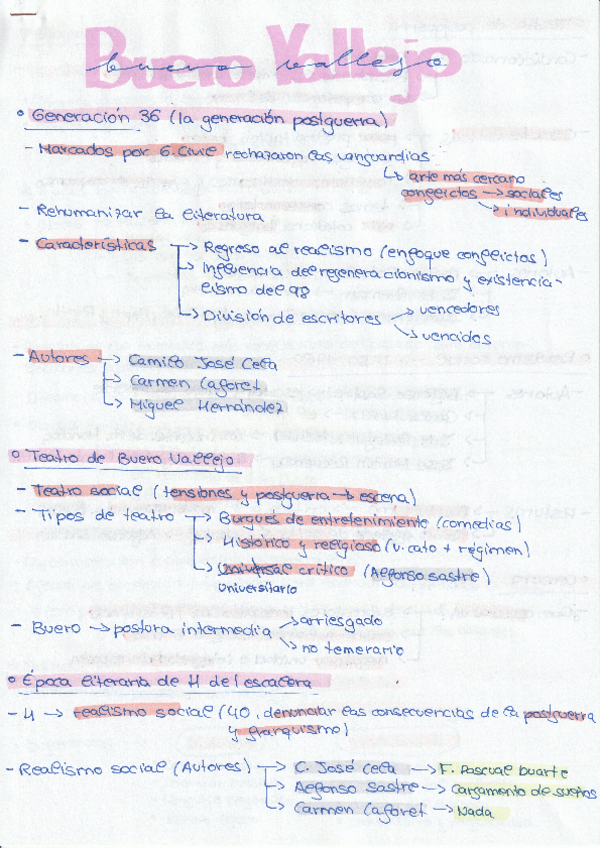 Buero Vallejo
buero vallejo
Generación 36 (la generación postguerra)
- Marcados por G. Civil rechazaron las vanguardias
↳ arte más cercano
conflictos → sociales
→ individuales
- Rehumanizar la literatura
- Características → Regreso al realismo (enfoque conflictos)
→ Influencia del regeneracionismo y existencia-
lismo del 98
→ División de escritores → vencedores
→ vencidos
- Autores → Camilo José Cela
→ Carmen Laforet
→ Miguel Hernández
Teatro de Buero Vallejo
- Teatro social (tensiones y postguerra → escena)
- Tipos de teatro → Burgués de entretenimiento (comedias)
→ Histórico y religioso (v. cato + régimen)
→ Universal crítico (Alfonso Sastre)
Universitario
- Buero → postura intermedia → arriesgado
→ no temerario
Época literaria de H del escalera
- H → realismo social (40, denunciar las consecuencias de la postguerra
y franquismo)
- Realismo social (Autores) → C. José Cela → F. Pascual Duarte
→ Alfonso Sastre → Cargamento de sueños
→ Carmen Laforet → Nada